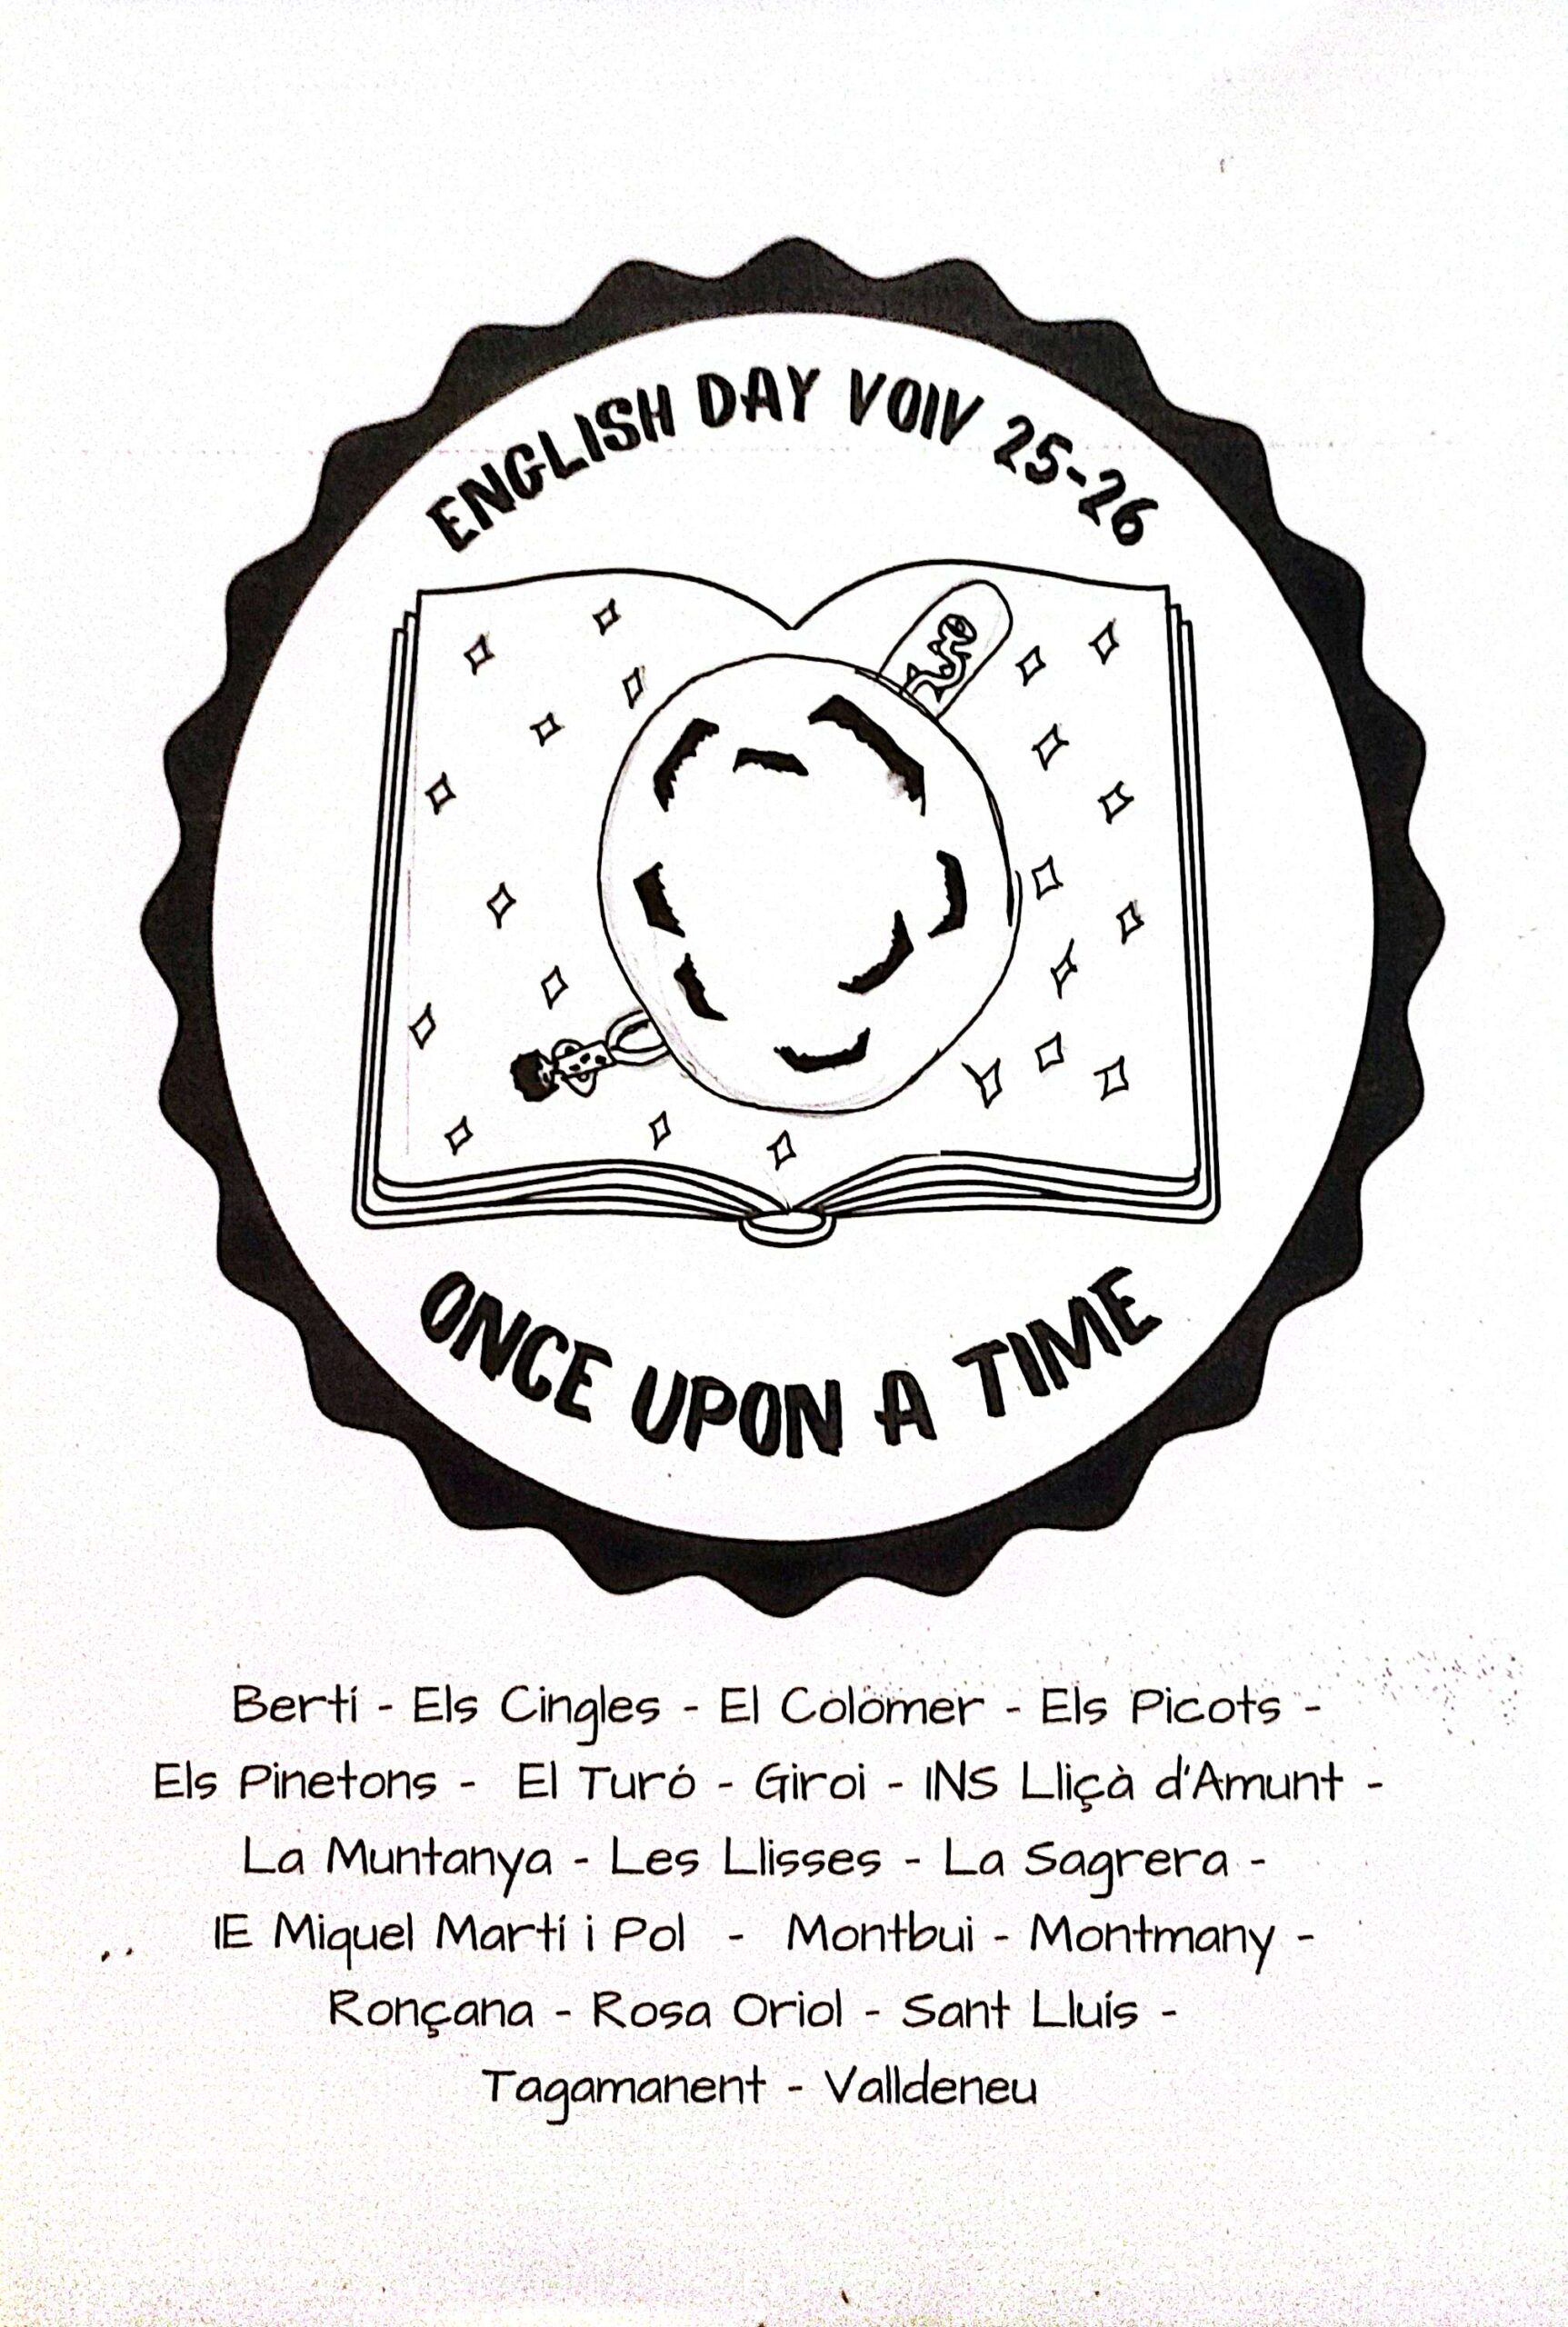 ENGLISH DAY VOIV 25-26
ONCE UPON A TIME
Bertí - Els Cingles - El Colomer - Els Picots -
Els Pinetons - El Turó - Giroi - INS Lliçà d'Amunt -
La Muntanya - Les Llisses - La Sagrera -
IE Miquel Martí i Pol - Montbui - Montmany -
Ronçana - Rosa Oriol - Sant Lluís -
Tagamanent - Valldeneu